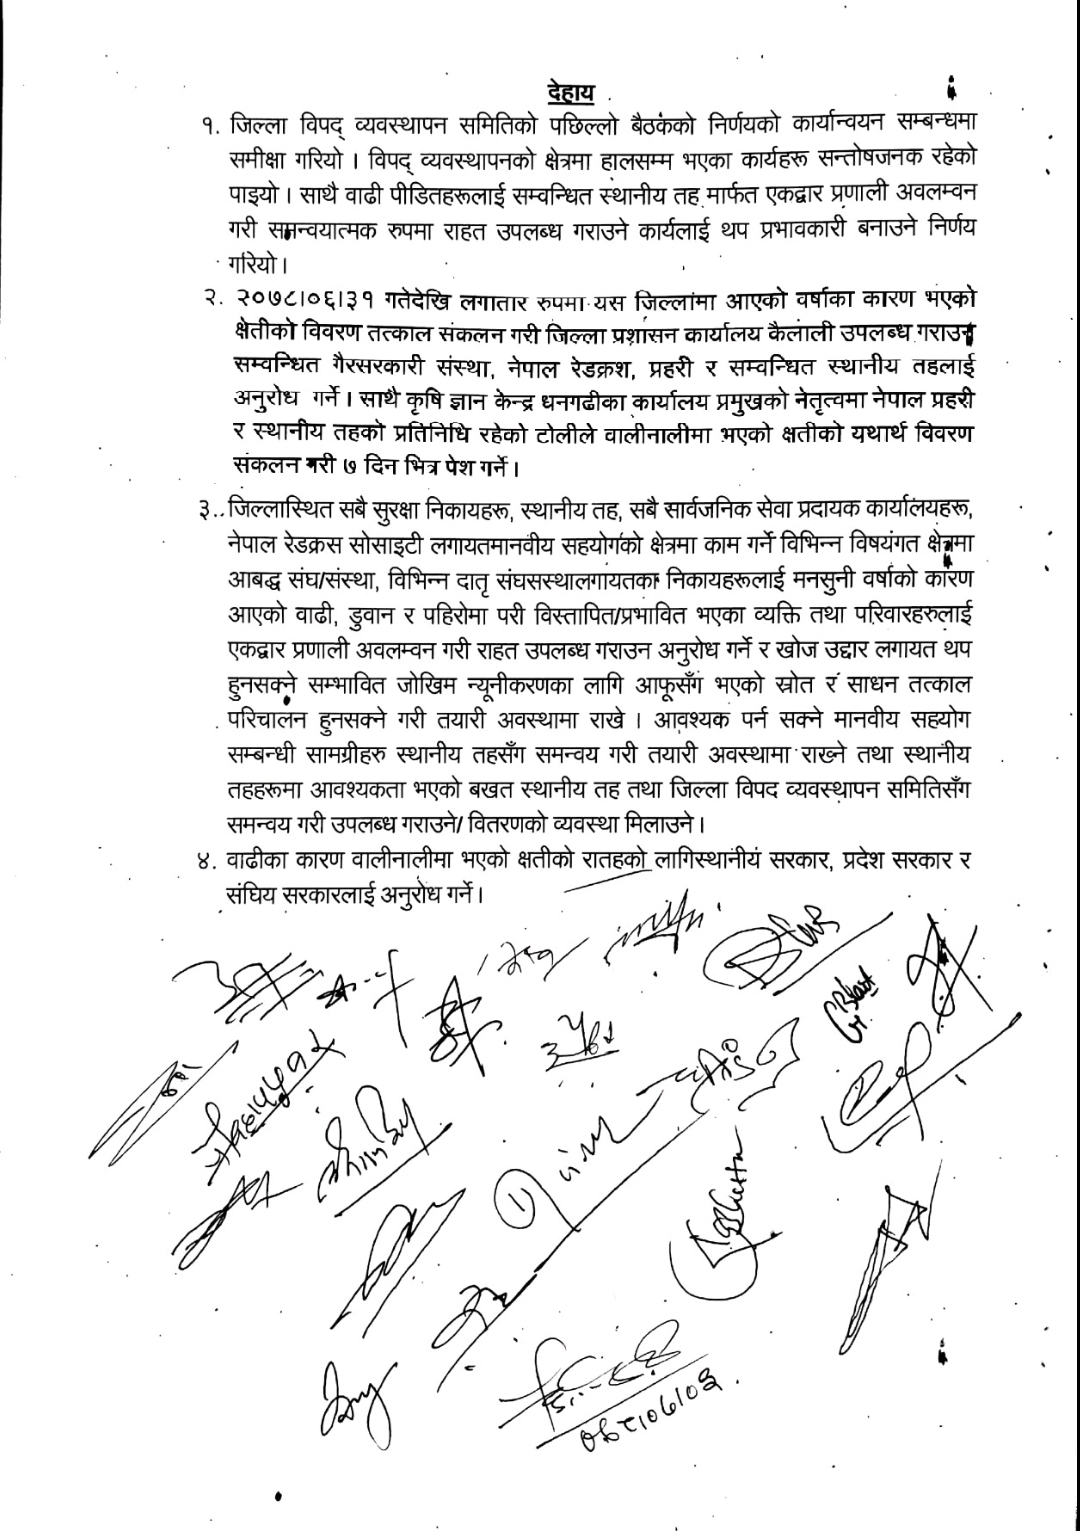 देहाय
१. जिल्ला विपद् व्यवस्थापन समितिको पछिल्लो बैठकको निर्णयको कार्यान्वयन सम्बन्धमा
समीक्षा गरियो । विपद् व्यवस्थापनको क्षेत्रमा हालसम्म भएका कार्यहरू सन्तोषजनक रहेको
पाइयो । साथै वाढी पीडितहरूलाई सम्वन्धित स्थानीय तह मार्फत एकद्वार प्रणाली अवलम्वन
गरी समन्वयात्मक रुपमा राहत उपलब्ध गराउने कार्यलाई थप प्रभावकारी बनाउने निर्णय
गरियो ।
२. २०७८।०६।३१ गतेदेखि लगातार रुपमा यस जिल्लामा आएको वर्षाका कारण भएको
क्षेतीको विवरण तत्काल संकलन गरी जिल्ला प्रशासन कार्यालय कैलाली उपलब्ध गराउन
सम्वन्धित गैरसरकारी संस्था, नेपाल रेडक्रश, प्रहरी र सम्वन्धित स्थानीय तहलाई
अनुरोध गर्ने । साथै कृषि ज्ञान केन्द्र धनगढीका कार्यालय प्रमुखको नेतृत्वमा नेपाल प्रहरी
र स्थानीय तहको प्रतिनिधि रहेको टोलीले वालीनालीमा भएको क्षतीको यथार्थ विवरण
संकलन गरी ७ दिन भित्र पेश गर्ने ।
३. जिल्लास्थित सबै सुरक्षा निकायहरू, स्थानीय तह, सबै सार्वजनिक सेवा प्रदायक कार्यालयहरू,
नेपाल रेडक्रस सोसाइटी लगायतमानवीय सहयोगको क्षेत्रमा काम गर्ने विभिन्न विषयगत क्षेत्रमा
आबद्ध संघ/संस्था, विभिन्न दातृ संघसस्थालगायतका निकायहरूलाई मनसुनी वर्षाको कारण
आएको वाढी, डुवान र पहिरोमा परी विस्तापित/प्रभावित भएका व्यक्ति तथा परिवारहरुलाई
एकद्वार प्रणाली अवलम्वन गरी राहत उपलब्ध गराउन अनुरोध गर्ने र खोज उद्दार लगायत थप
हुनसक्ने सम्भावित जोखिम न्यूनीकरणका लागि आफूसँग भएको स्रोत र साधन तत्काल
परिचालन हुनसक्ने गरी तयारी अवस्थामा राखे । आवश्यक पर्न सक्ने मानवीय सहयोग
सम्बन्धी सामग्रीहरु स्थानीय तहसँग समन्वय गरी तयारी अवस्थामा राख्ने तथा स्थानीय
तहहरूमा आवश्यकता भएको बखत स्थानीय तह तथा जिल्ला विपद व्यवस्थापन समितिसँग
समन्वय गरी उपलब्ध गराउने/ वितरणको व्यवस्था मिलाउने ।
४. वाढीका कारण वालीनालीमा भएको क्षतीको रातहको लागिस्थानीय सरकार, प्रदेश सरकार र
संघिय सरकारलाई अनुरोध गर्ने ।